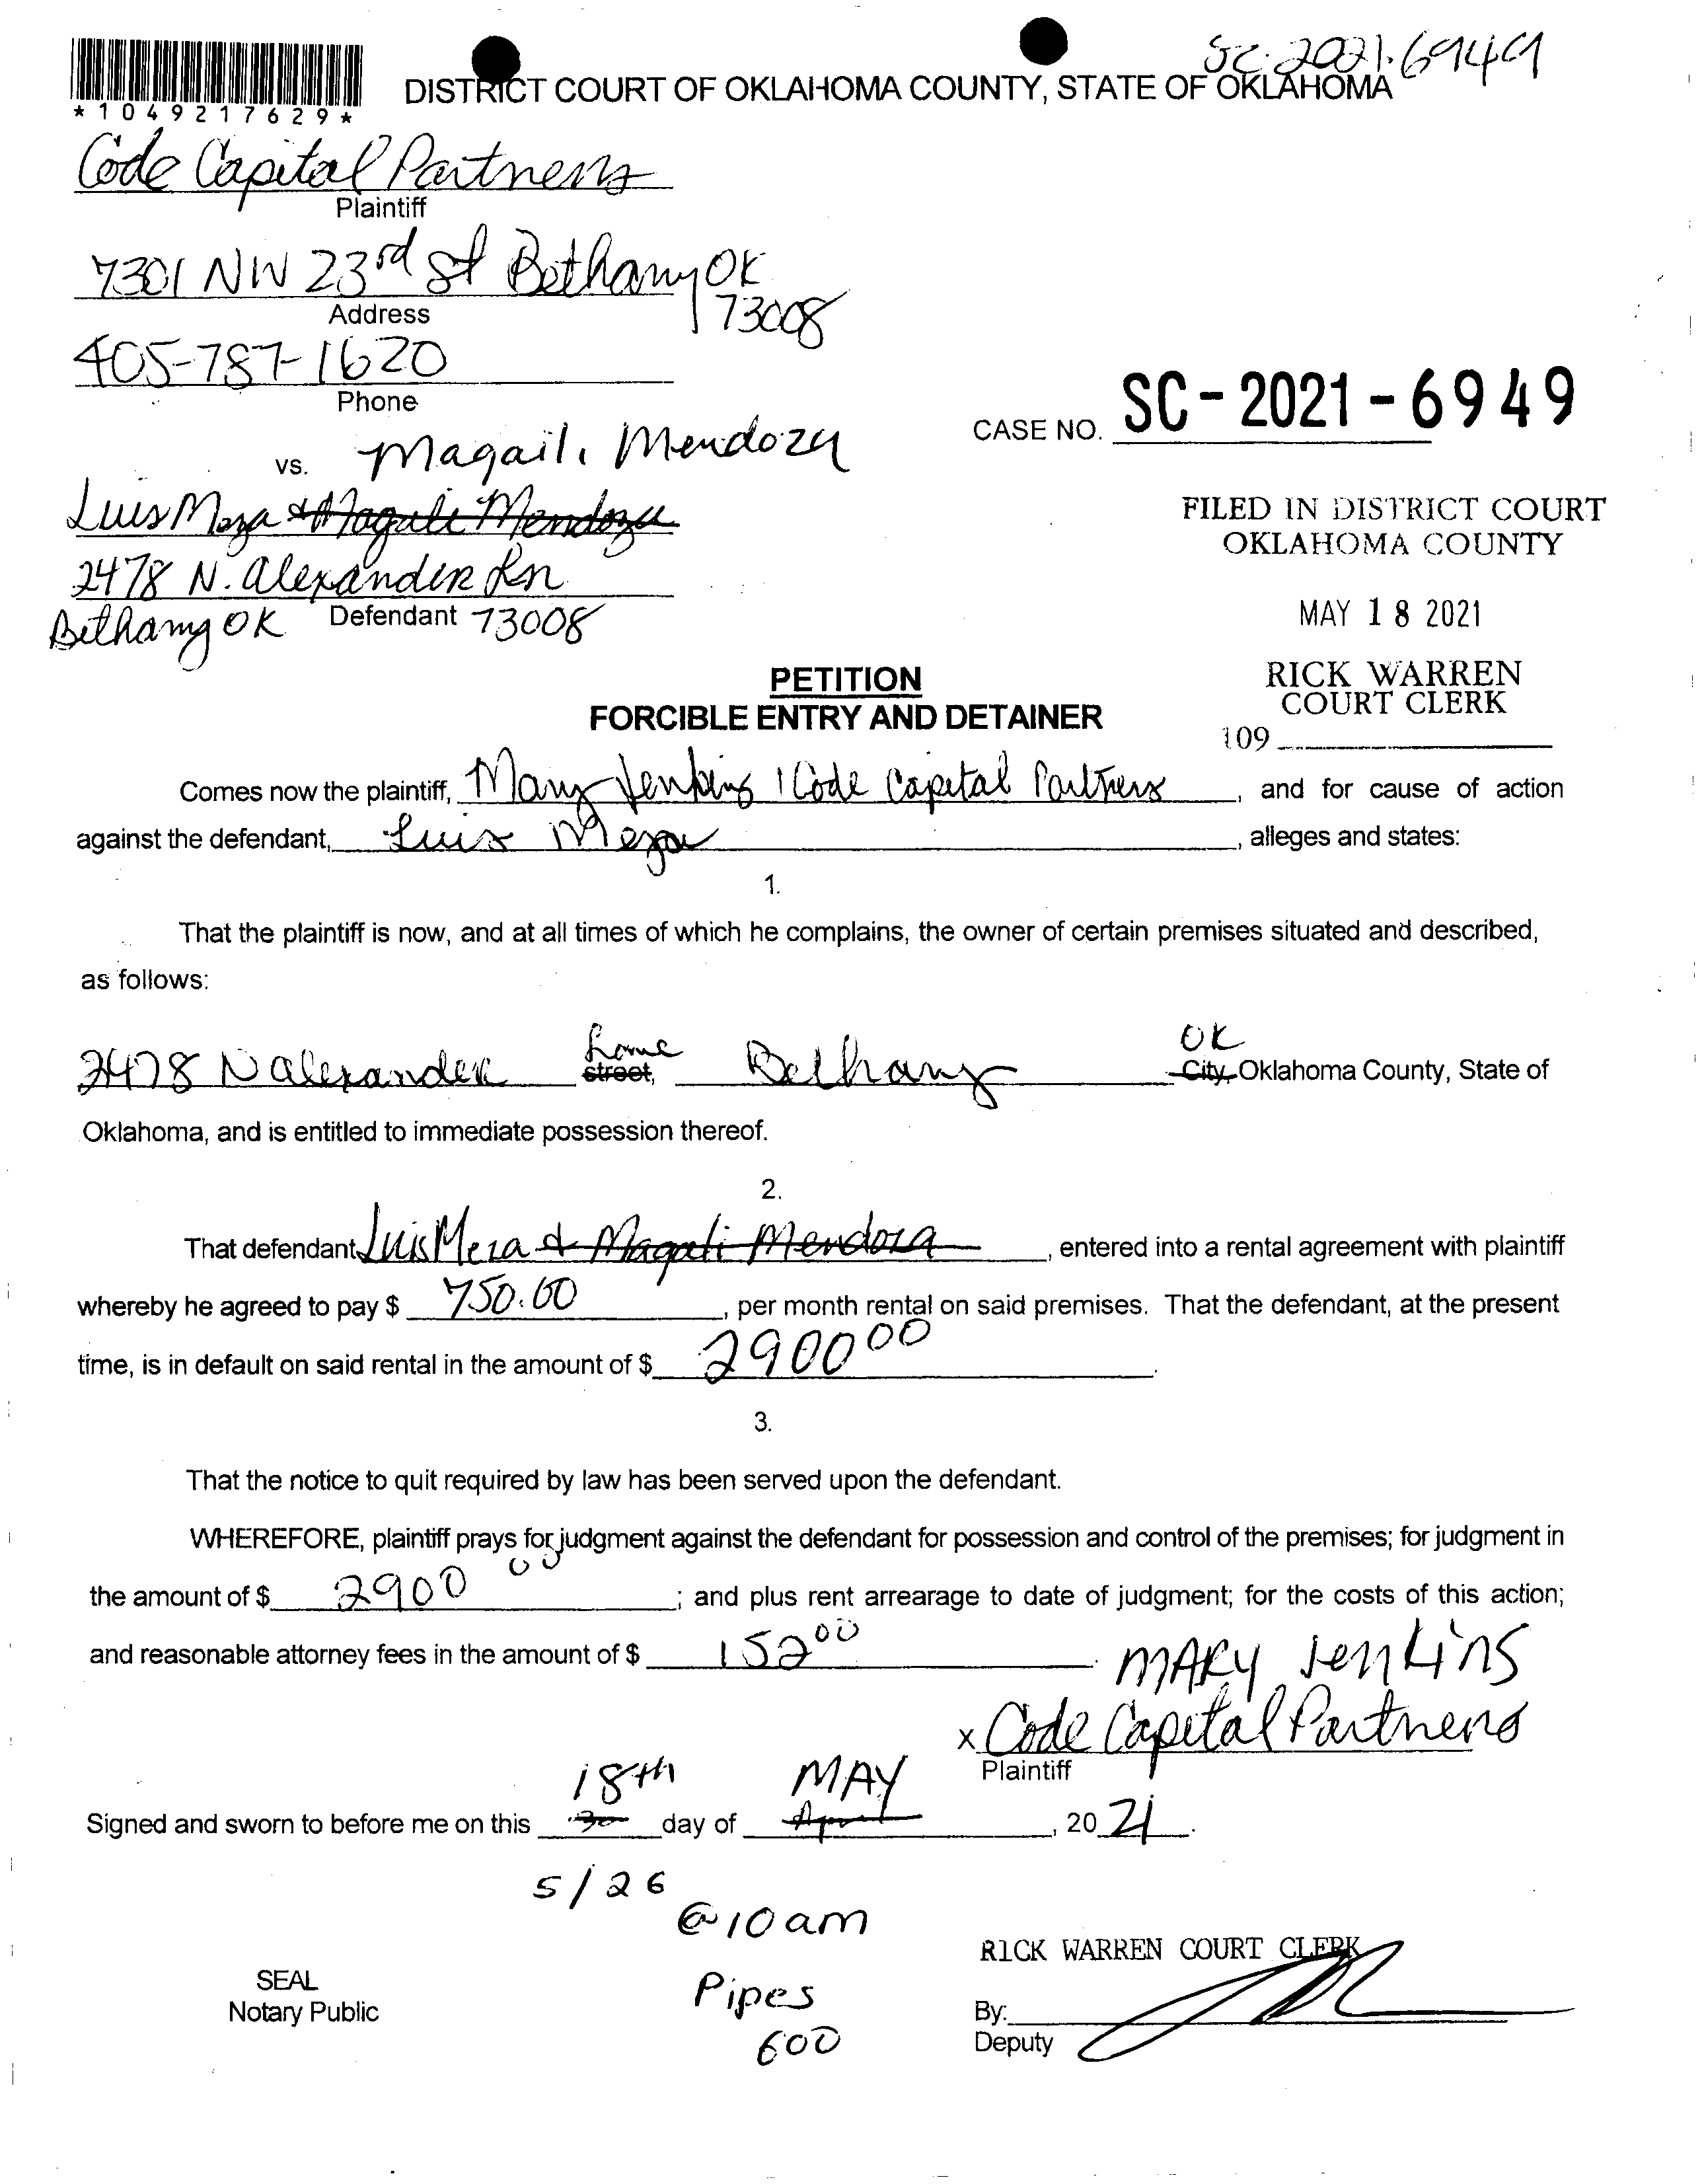 SC-2021-6949
*1049217629*
DISTRICT COURT OF OKLAHOMA COUNTY, STATE OF OKLAHOMA
Code Capital Partners
Plaintiff
7301 NW 23rd St Bethany OK
73008
Address
405-787-1620
Phone
CASE NO. SC-2021-6949
vs. Magaili Mendoza
Luis Meza & Magali Mendoza
2478 N. Alexander Ln
Bethany OK Defendant 73008
FILED IN DISTRICT COURT
OKLAHOMA COUNTY
MAY 18 2021
RICK WARREN
COURT CLERK
109
PETITION
FORCIBLE ENTRY AND DETAINER
Comes now the plaintiff, Mary Jenkins / Code Capital Partners, and for cause of action
against the defendant, Luis Meza, alleges and states:
1.
That the plaintiff is now, and at all times of which he complains, the owner of certain premises situated and described,
as follows:
2478 N Alexander street, Bethany OK City, Oklahoma County, State of
Oklahoma, and is entitled to immediate possession thereof.
2.
That defendant Luis Meza & Magali Mendoza, entered into a rental agreement with plaintiff
whereby he agreed to pay $ 750.00, per month rental on said premises. That the defendant, at the present
time, is in default on said rental in the amount of $ 2900 00.
3.
That the notice to quit required by law has been served upon the defendant.
WHEREFORE, plaintiff prays for judgment against the defendant for possession and control of the premises; for judgment in
the amount of $ 2900 00; and plus rent arrearage to date of judgment; for the costs of this action;
and reasonable attorney fees in the amount of $ 152 00.
MARY Jenkins
x Code Capital Partners
Plaintiff
18th MAY
Signed and sworn to before me on this 30 day of April, 2021.
5/26
@10am
Pipes
600
SEAL
Notary Public
RICK WARREN COURT CLERK
By:
Deputy